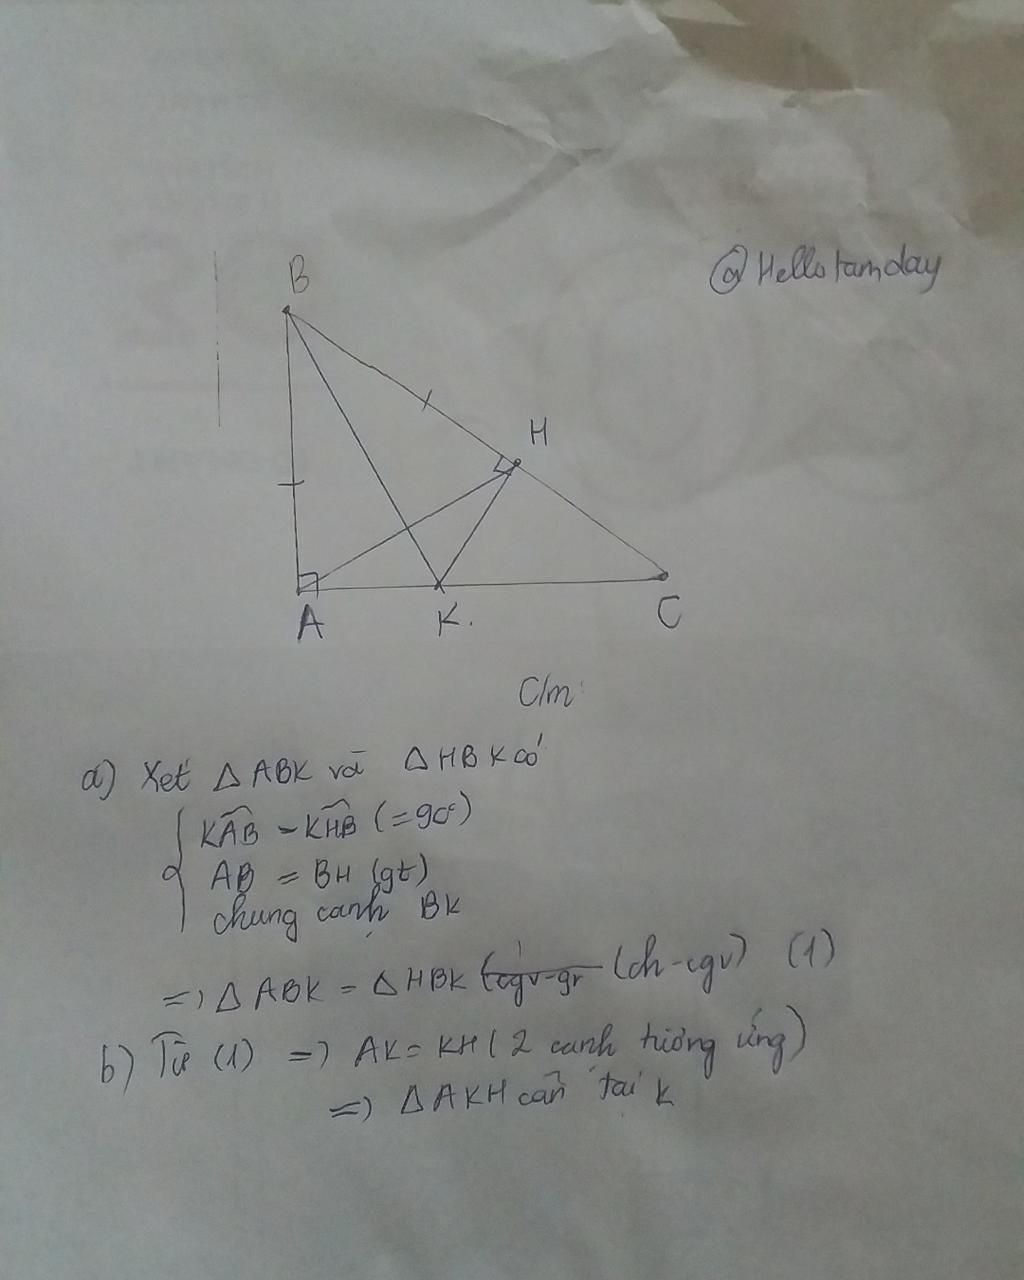 B
@Hellotamday
H
A
K.
C
C/m:
a) Xét Δ ABK và Δ HBK có
KAB = KHB (=90°)
AB = BH (gt)
chung cạnh BK
=> Δ ABK = Δ HBK (cgv-gn (ch-cgv) (1)
b) Từ (1) => AK = KH (2 cạnh tương ứng)
=> Δ AKH cân tại K